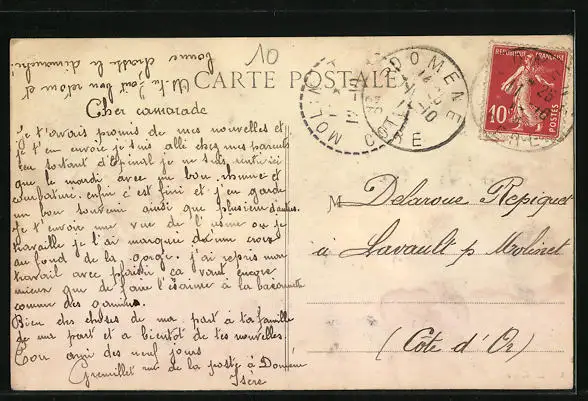 10
bonne chose le dimanche
as-tu fait bon retour et
CARTE POSTALE
Cher camarade
Je t'avais promis de mes nouvelles et
je t'en envoie je suis allé chez mes parents
en sortant d'Epinal je ne suis rentré ici
que le mardi avec un bon rhume et
courbature. enfin c'est fini et j'en garde
un bon souvenir ainsi que plusieurs d'autres.
Je t'envoie une vue de l'usine ou je
travaille je l'ai marquée d'une croix
au fond de la gorge. j'ai repris mon
travail avec plaisir ca vaut encore
mieux que de faire l'escrime à la baïonnette
comme des gamins.
Bien des choses de ma part à ta famille
de ma part et a bientôt de tes nouvelles.
Ton ami des neuf jours
Gremillet rue de la poste à Domène
Isere
MOLIN
COTE
DOMENE
10
ERE
REPUBLIQUE FRANÇAISE
10c
POSTES
M Delaroue Repiquet
à Lavault p Molinet
(Côte d'Or)